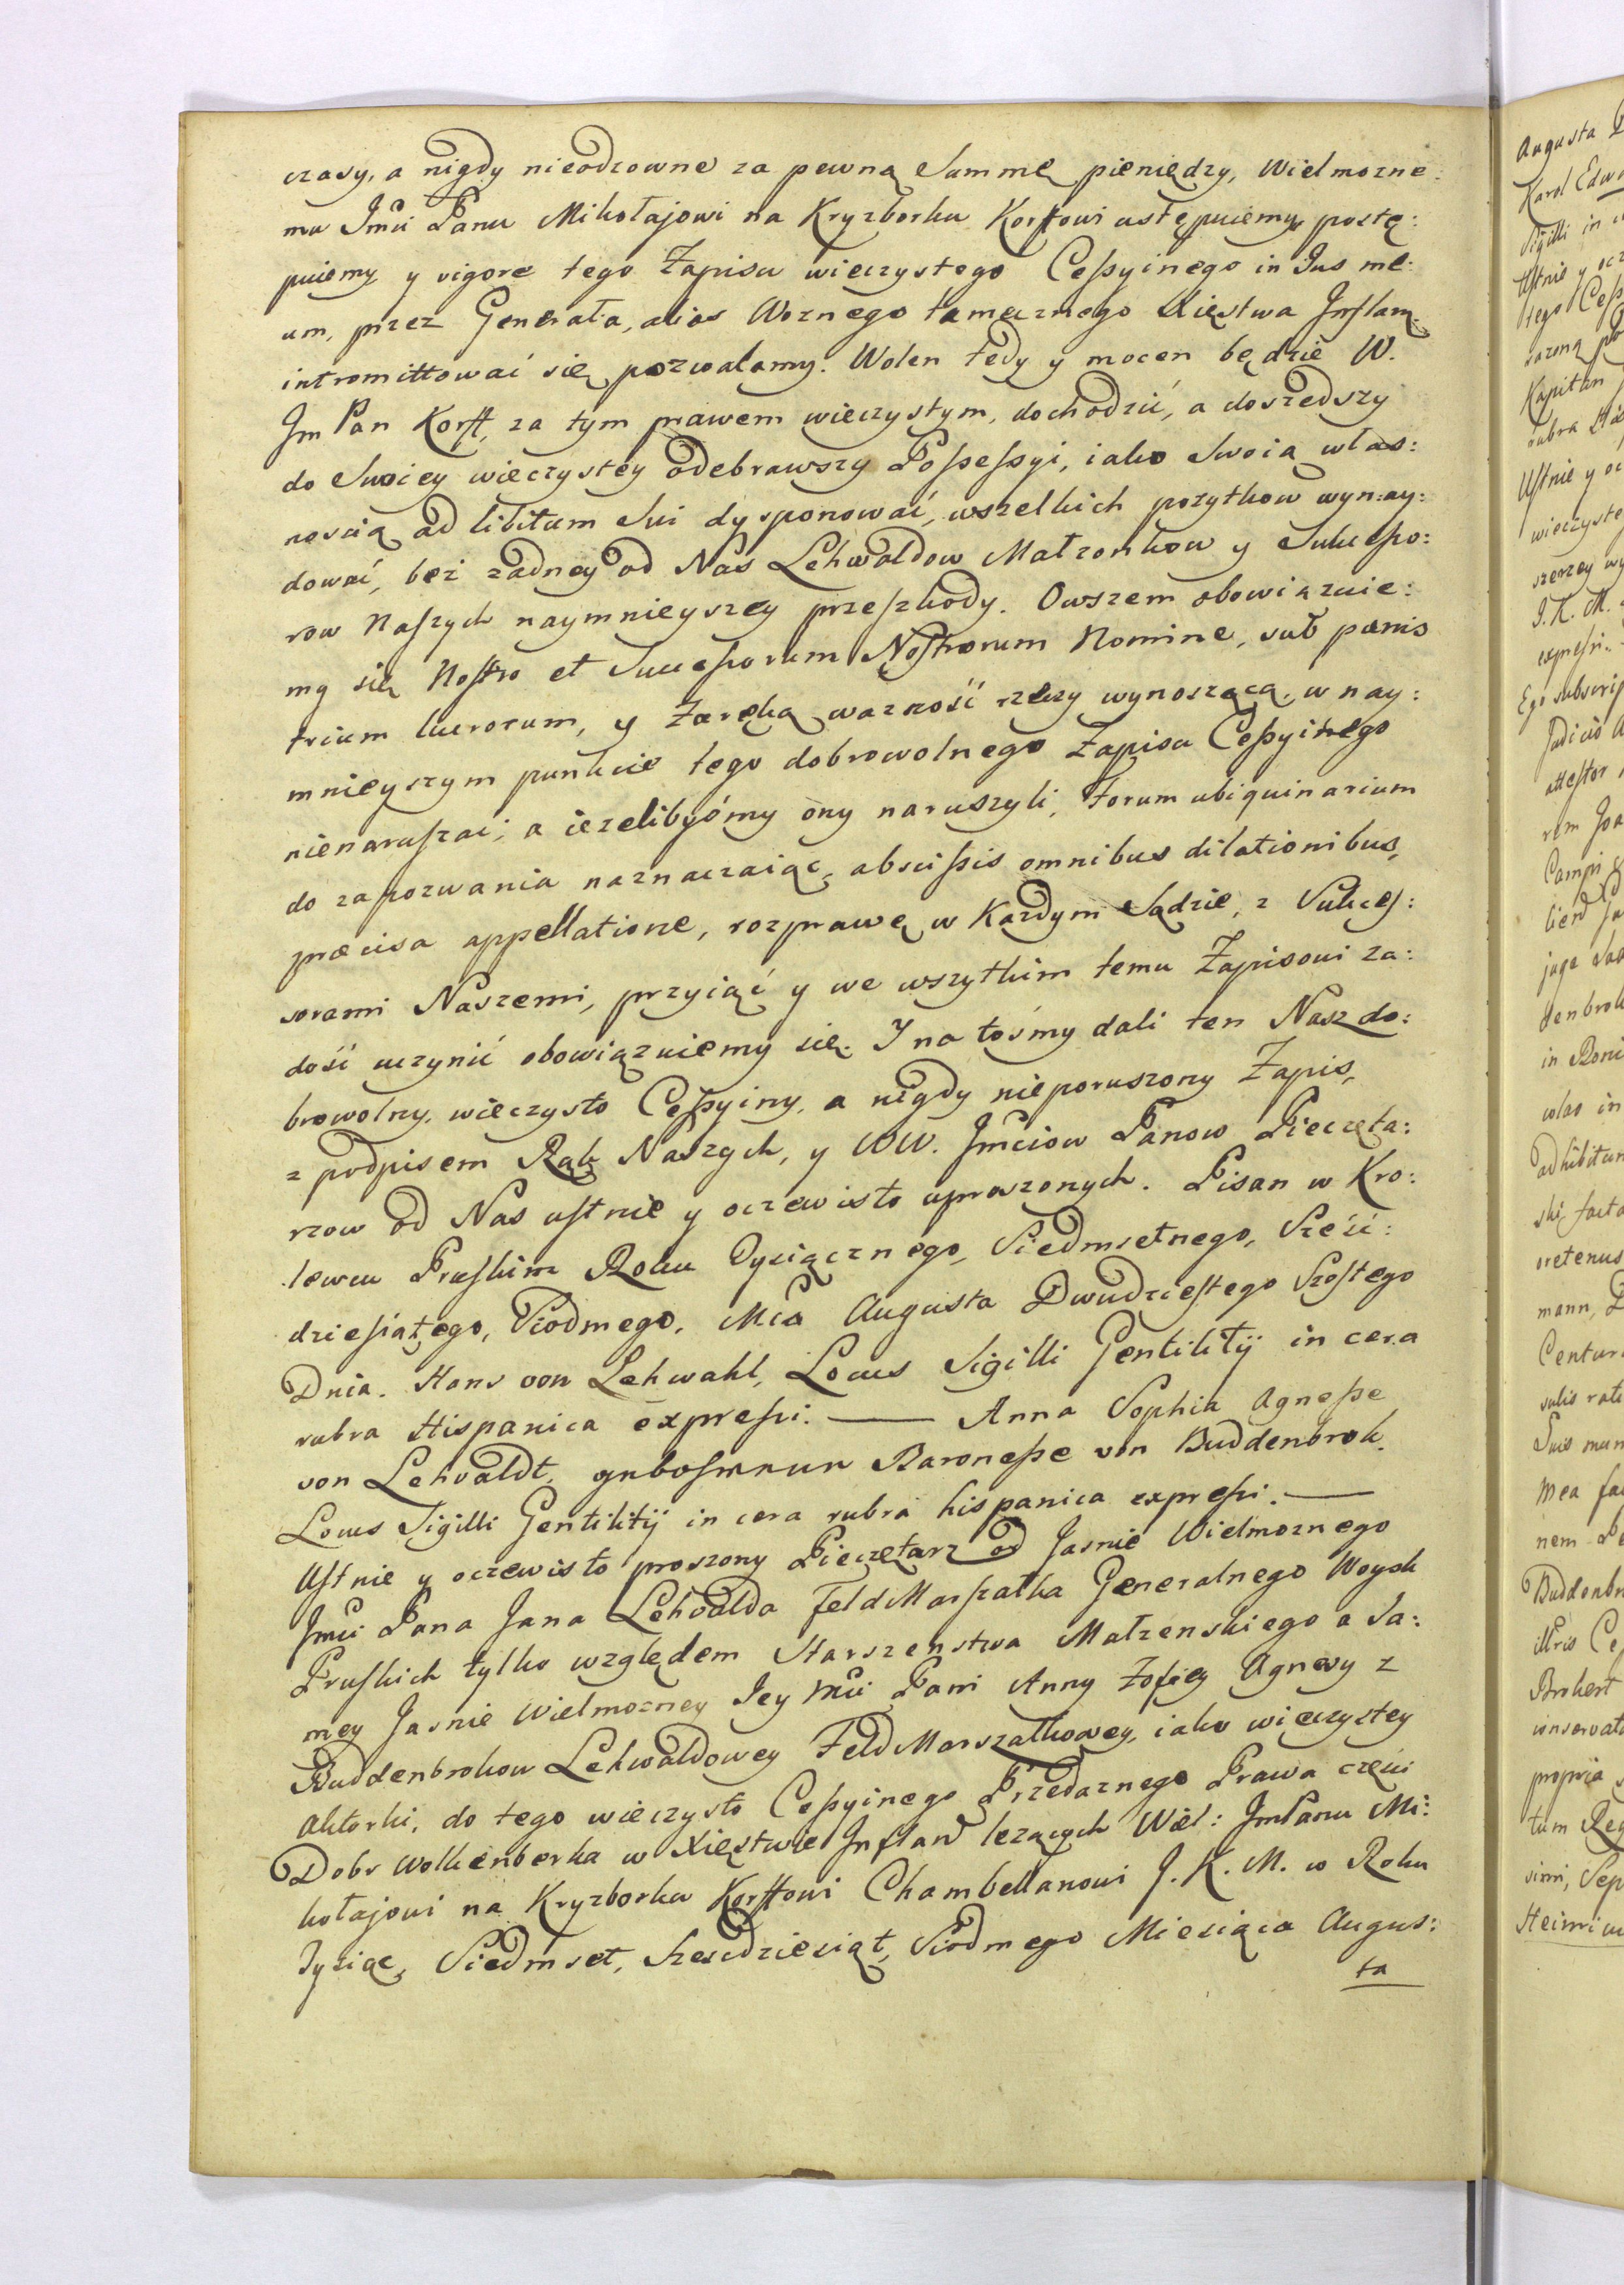 czasy, a nigdy nieodzowne za pewną Summę pieniędzy, Wielmozne:
mu Jmći Panu Mikołajowi na Kryzborku Korffowi ustępuiemy, postę:
puiemy y vigore tego Zapisu wieczystego Ceßyinego in Jus me:
um, przez Generała, alias Woznego tamecznego Xięstwa Jnflanᵗ
intromittować się pozwalamy. Wolen tedy y mocen będzie W.
Jm Pan Korff, za tym prawem wieczystym, dochodzić, a doszedszy
do Swoiey wieczystey odebrawszy Poßeßyi, iako Swoią włas:
nością ad libitum Sui dysponować, wszelkich pozytkow wynay:
dować, bez zadney od Nas Lehwaldow Małzonkow y Sukceßo:
row Naszych naymnieyszey przeszkody. Owszem obowiązuie:
my się Nostro et Succeßorum Nostrorum Nomine, sub pœnis
trium lucrorum, y Zaręką wazność rzeczy wynoszącą, w nay:
mnieyszym punkcie tego dobrowolnego Zapisu Ceßyinego
nienaruszać; a iezelibyśmy ony naruszyli, Forum ubiquinarium
do zapozwania naznaczaiąc, abscißis omnibus dilationibus,
præcisa appellatione, rozprawę w Kazdym Sądzie, z Sukces:
sorami Naszemi, przyiąć y we wszytkim temu Zapisowi za:
dość uczynić obowiązuiemy się. I na tośmy dali ten Nasz do:
browolny, wieczysto Ceßyiny, a nigdy nieporuszony Zapis,
z podpisem Rąk Naszych, y WW. Jmciow Panow Pieczęta:
rzow od Nas ustnie y oczewisto uproszonych. Pisan w Kro:
lewcu Pruskim Roku Tysiącznego, Siedmsetnego, Sześć:
dziesiątego, Siodmego, Mca Augusta Dwudziestego Szostego
Dnia. Hans von Lehwahl, Locus Sigilli Gentilitij in cera
rubra Hispanica expreßi. — Anna Sophia Agneße
von Lehvaldt, gebohrnun Baroneße von Buddenbrok.
Locus Sigilli Gentilitij in cera rubra hispanica expreßi. —
Ustnie y oczewisto proszony Pieczętarz od Jasnie Wielmoznego
Jmći Pana Jana Lehvalda FeldMarszałka Generalnego Woysk
Pruskich tylko względem Starszenstwa Małzenskiego a Sa:
mey Jasnie Wielmozney Jey Mći Pani Anny Zofiey Agnesy z
Buddenbrokow Lehwaldowey FeldMarszałkowey, iako wieczystey
Aktorki, do tego wieczysto Ceßyinego Przedaznego Prawa części
Dobr Wolkenberka w Xięstwie Jnflanᵗ lezących Wiel: JmPanu Mi:
kołajowi na Kryzborku Korffowi Chambellanowi J. K. M. w Roku
Tysiąc, Siedmset, Szescdziesiąt, Siodmego Miesiąca Augus:
ta
Augusta
Karol Edwa
Sigilli in
Ustnie y ocz
tego Ceß
Kapitan
rubra
Ustnie y oc
wieczyste
szerzey wy
J. K. M.
expreßi.
Ego subscrip
Judicio
attestor
rem Joa
Campi
jaga
denbrok
in
colao in
adhibitum
ski facta
oretenus
mann,
Centur
Suis man
Mea fac
nem
Buddenbr
illris Ce
Brokert
conservat
propria
tum Reg
simi, Sep